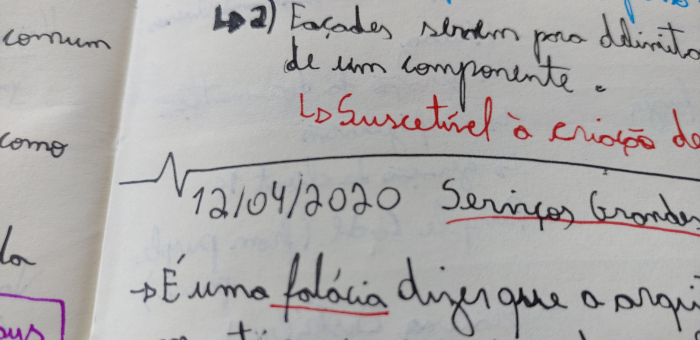 comum
como
la
↳ 2) Façades servem para delimita
de um componente.
↳ Suscetível à criação de
12/04/2020 Serviços Grandes
→ É uma falácia dizer que a arqui